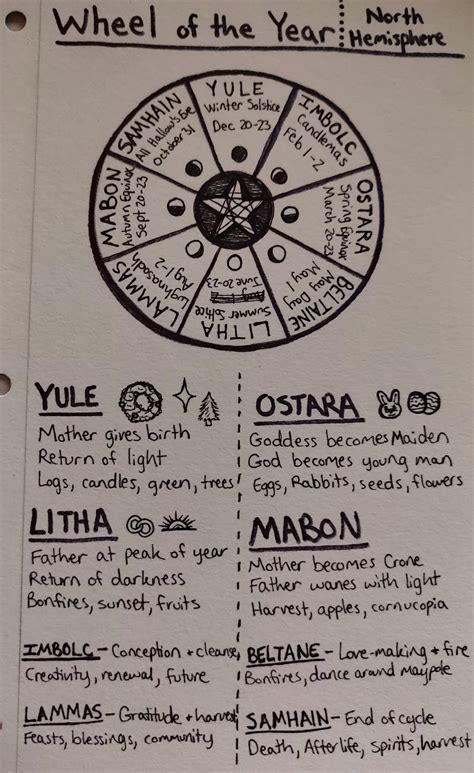 Wheel of the Year
North
Hemisphere
YULE
Winter Solstice
Dec 20-23
IMBOLC
Candlemas
Feb 1-2
OSTARA
Spring Equinox
March 20-23
BELTAINE
May Day
May 1
LITHA
Summer Solstice
June 20-23
LAMMAS
Lughnasadh
Ag 1-2
MABON
Autumn Equinox
Sept 20-23
SAMHAIN
All Hallow's Eve
October 31
YULE
Mother gives birth
Return of light
Logs, candles, green, trees
OSTARA
Goddess becomes Maiden
God becomes young man
Eggs, Rabbits, seeds, flowers
LITHA
Father at peak of year
Return of darkness
Bonfires, sunset, fruits
MABON
Mother becomes Crone
Father wanes with light
Harvest, apples, cornucopia
IMBOLC - Conception + cleanse,
Creativity, renewal, future
BELTANE - Love-making + fire
Bonfires, dance around Maypole
LAMMAS - Gratitude + harvest
Feasts, blessings, community
SAMHAIN - End of cycle
Death, Afterlife, spirits, harvest